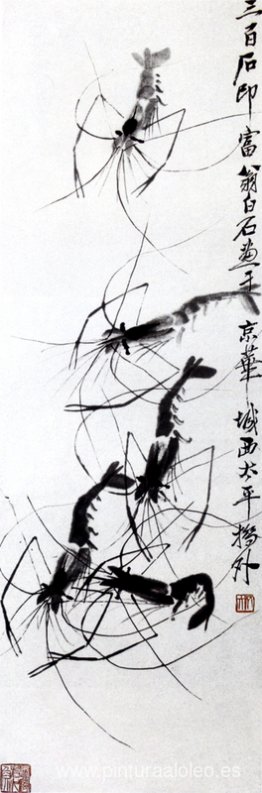 三百石印富翁白石画于京華城西太平橋外
www.pinturaaloleo.es